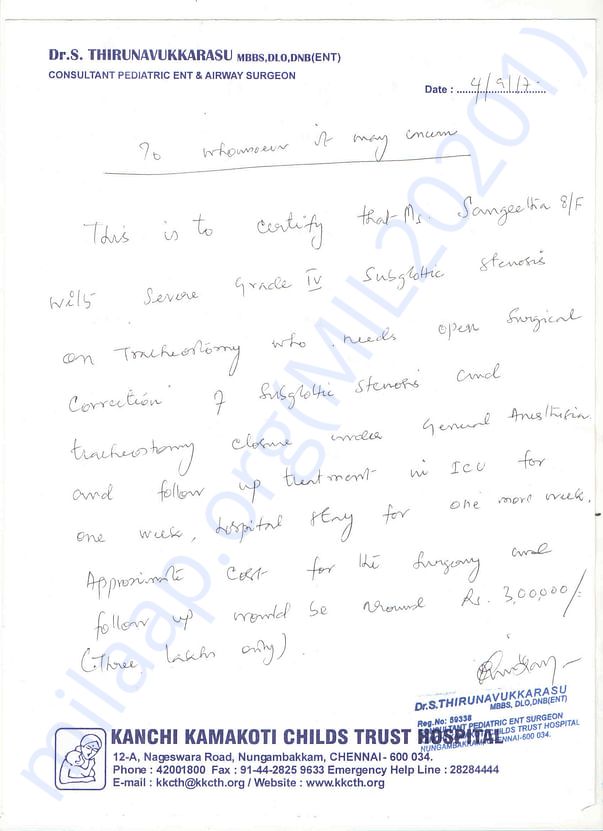 Dr.S. THIRUNAVUKKARASU MBBS,DLO,DNB(ENT)
CONSULTANT PEDIATRIC ENT & AIRWAY SURGEON
Date : 4/9/17
To whomsoever it may concern
This is to certify that Ms. Sangeetha 8/F
with Severe Grade IV Subglottic Stenosis
on Tracheostomy who needs open Surgical
Correction of Subglottic Stenosis and
tracheostomy closure under General Anesthesia
and follow up treatment in ICU for
one week, hospital stay for one more week.
Approximate Cost for the Surgery and
follow up would be around Rs. 3,00,000/-
(Three lakhs only)
Dr.S.THIRUNAVUKKARASU
MBBS, DLO,DNB(ENT)
Reg.No: 59338
CONSULTANT PEDIATRIC ENT SURGEON
KANCHI KAMAKOTI CHILDS TRUST HOSPITAL
NUNGAMBAKKAM, CHENNAI-600 034.
KANCHI KAMAKOTI CHILDS TRUST HOSPITAL
12-A, Nageswara Road, Nungambakkam, CHENNAI - 600 034.
Phone : 42001800 Fax : 91-44-2825 9633 Emergency Help Line : 28284444
E-mail : kkcth@kkcth.org / Website : www.kkcth.org
milaap.org(MIL20201)